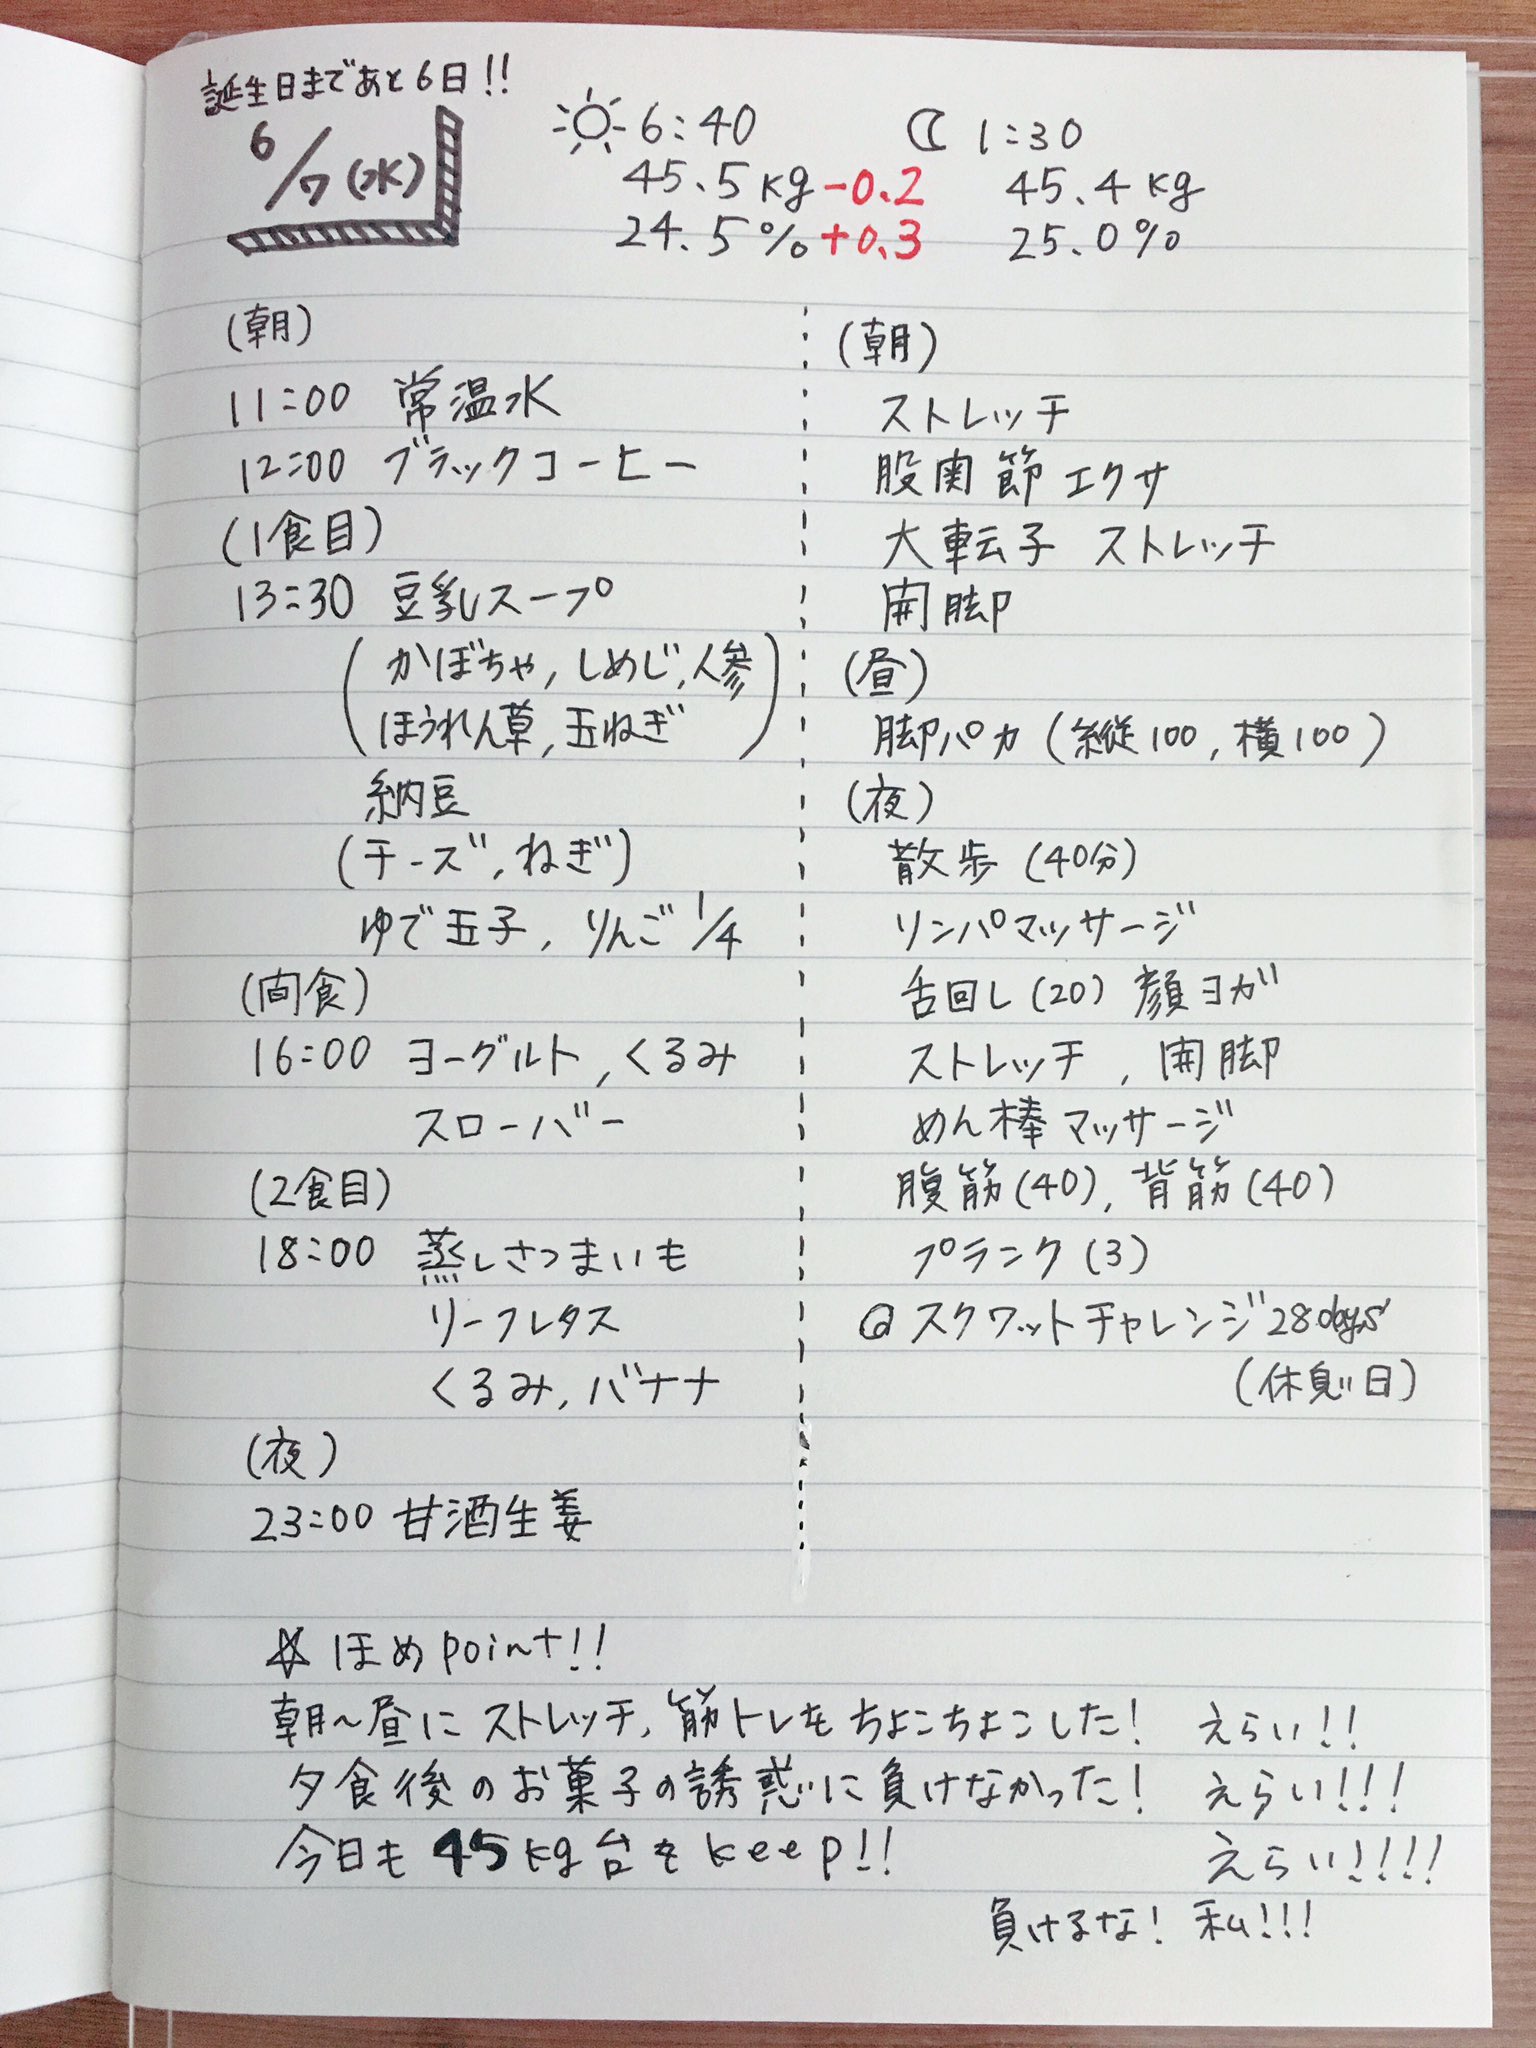 誕生日まであと6日!!
6/7(水)
6:40
45.5kg -0.2
24.5% +0.3
1:30
45.4kg
25.0%
(朝)
11:00 常温水
12:00 ブラックコーヒー
(1食目)
13:30 豆乳スープ
(かぼちゃ,しめじ,人参
ほうれん草,玉ねぎ)
納豆
(チーズ,ねぎ)
ゆで玉子,りんご1/4
(間食)
16:00 ヨーグルト,くるみ
スローバー
(2食目)
18:00 蒸しさつまいも
リーフレタス
くるみ,バナナ
(夜)
23:00 甘酒生姜
(朝)
ストレッチ
股関節エクサ
大転子 ストレッチ
開脚
(昼)
脚パカ(縦100,横100)
(夜)
散歩(40分)
リンパマッサージ
舌回し(20) 顔ヨガ
ストレッチ,開脚
めん棒マッサージ
腹筋(40),背筋(40)
プランク(3)
@スクワットチャレンジ28days
(休息日)
☆ほめpoint!!
朝~昼にストレッチ,筋トレをちょこちょこした! えらい!!
夕食後のお菓子の誘惑に負けなかった! えらい!!!
今日も45kg台をkeep!! えらい!!!!
負けるな! 私!!!